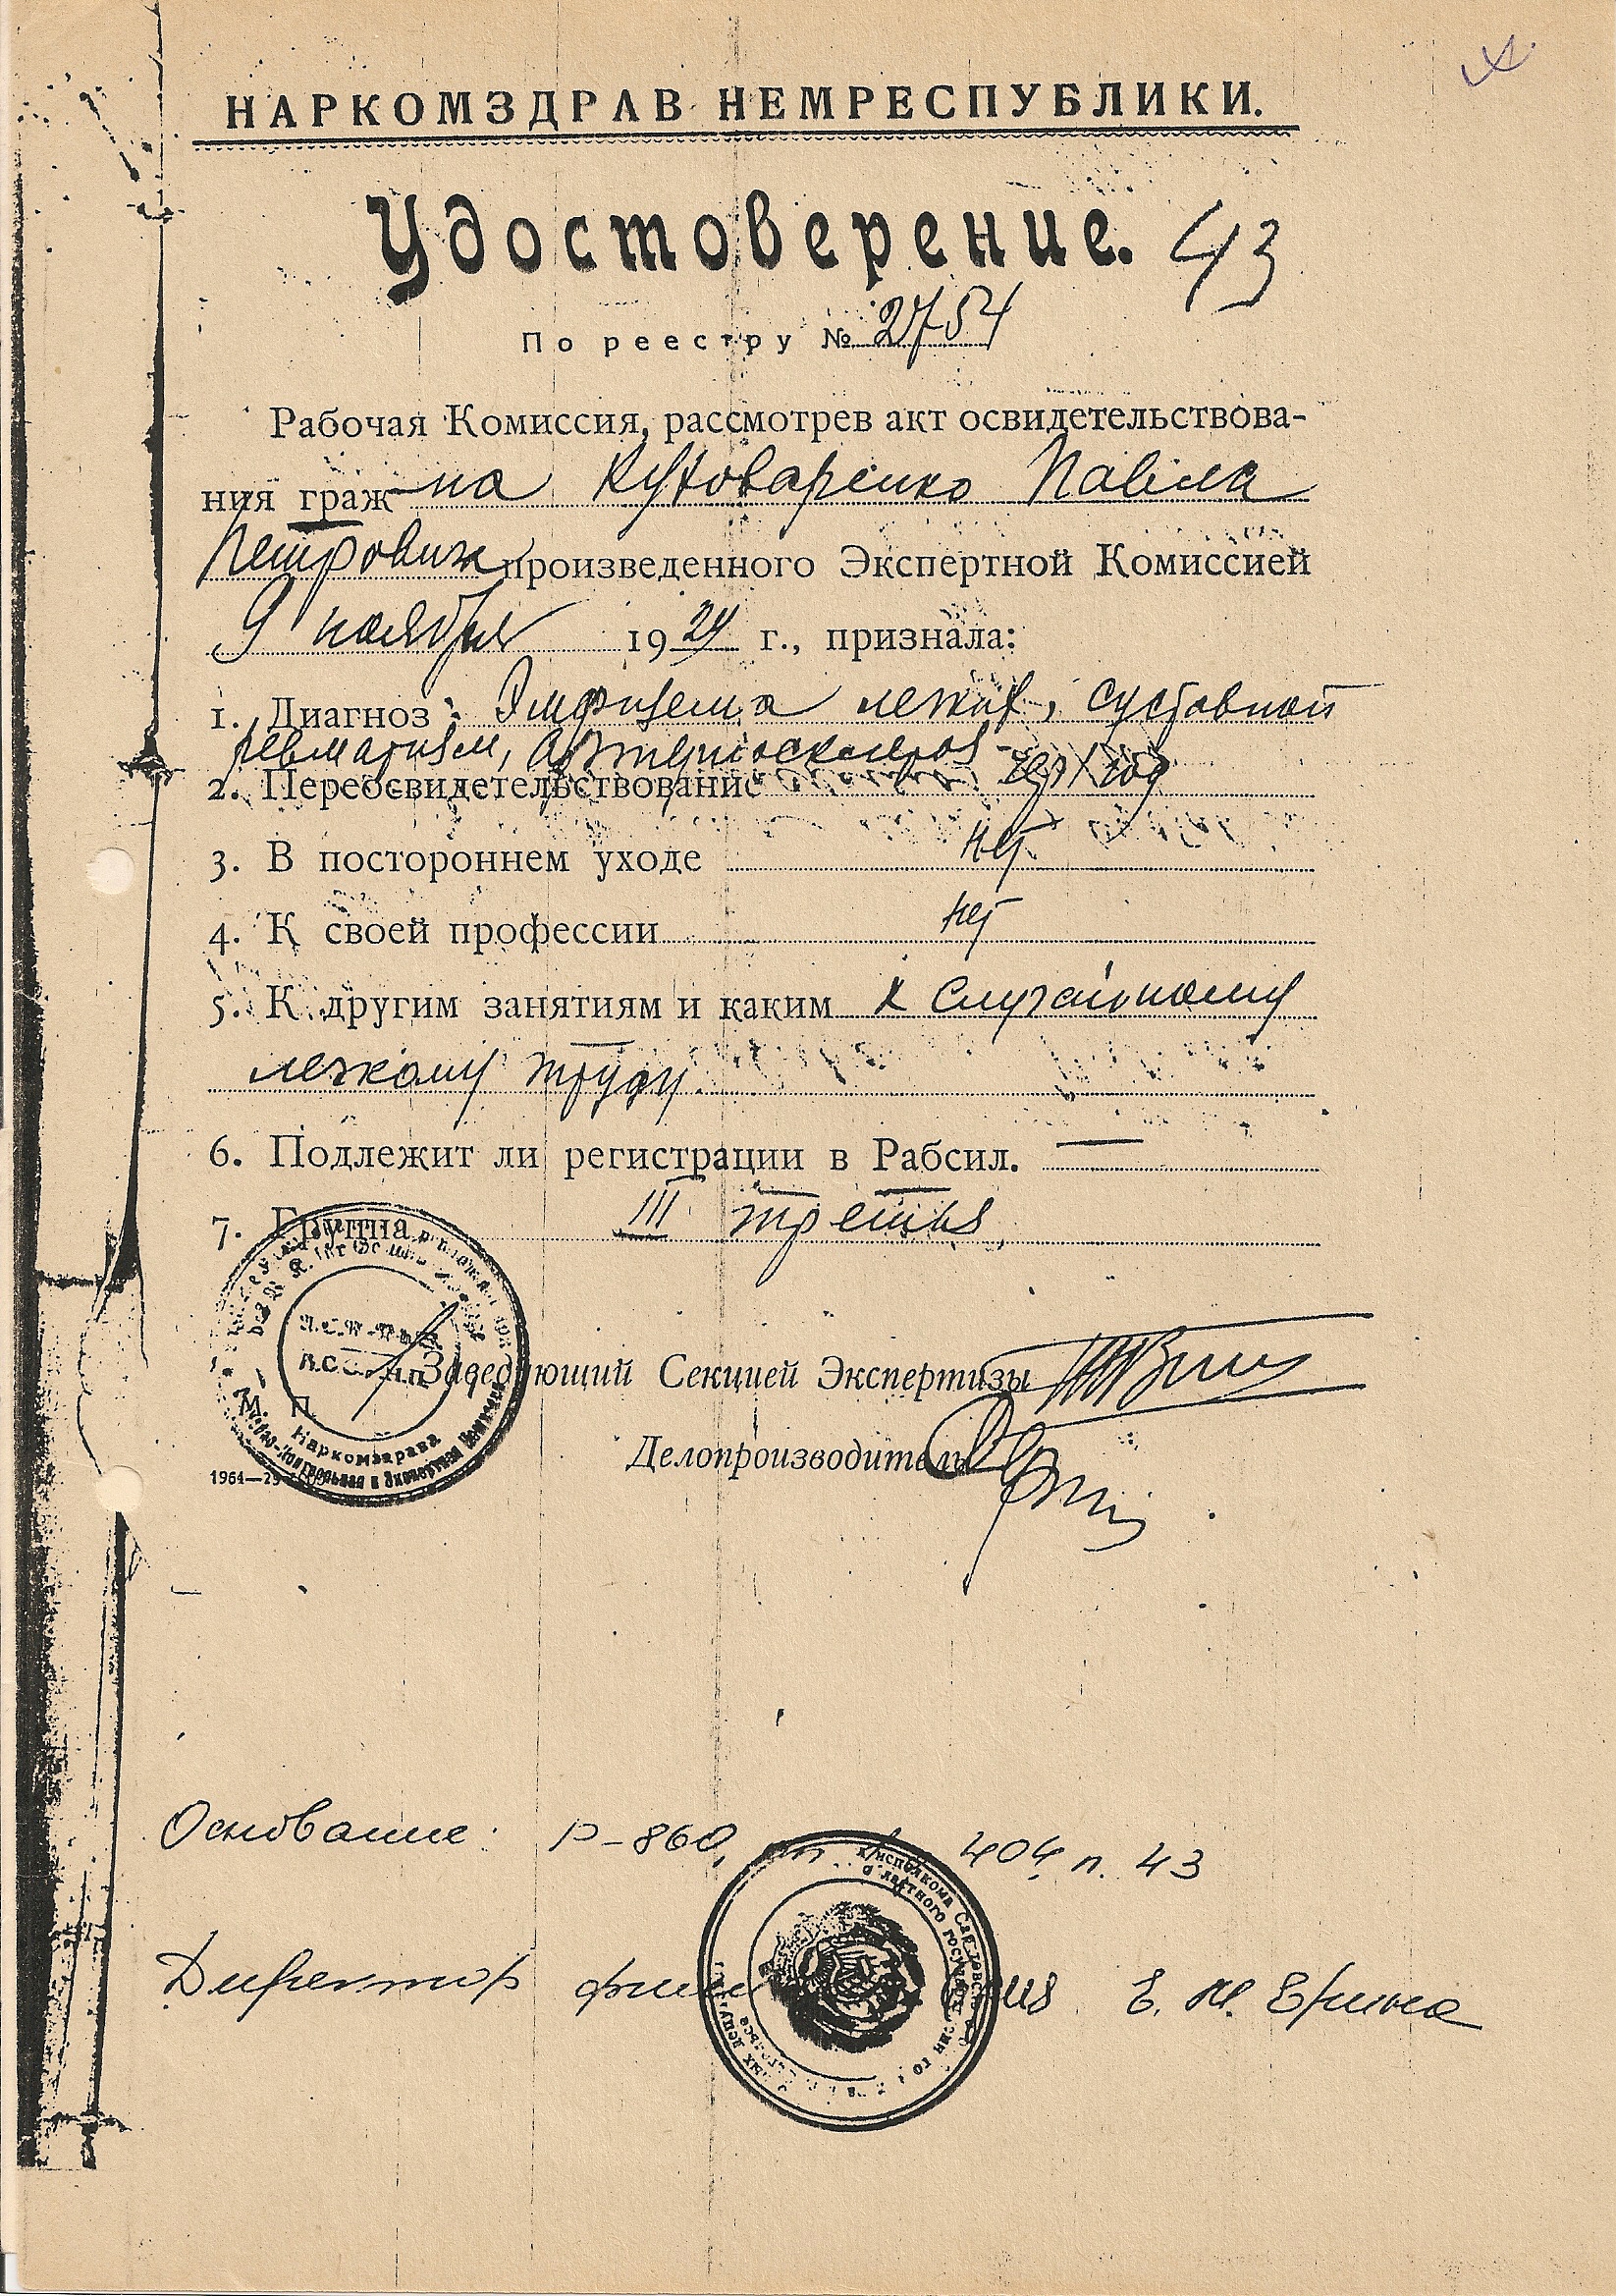 НАРКОМЗДРАВ НЕМРЕСПУБЛИКИ.
Удостоверение. 43
По реестру № 2754
Рабочая Комиссия, рассмотрев акт освидетельствова-
ния граж-на Кутоваренко Павла
Петровича произведенного Экспертной Комиссией
9 ноября 1924 г., признала:
1. Диагноз: Эмфизема легких, суставной
ревматизм, артериосклероз
2. Переосвидетельствование чер/х год
3. В постороннем уходе нет
4. К своей профессии нет
5. К другим занятиям и каким к случайному
легкому труду.
6. Подлежит ли регистрации в Рабсил. —
7. Группа III третья
Заведующий Секцией Экспертизы
М. П.
Наркомздрава
Делопроизводитель
1964—29
Основание: Р-860, оп. 404, л. 43
Директор Е. М. Ерина